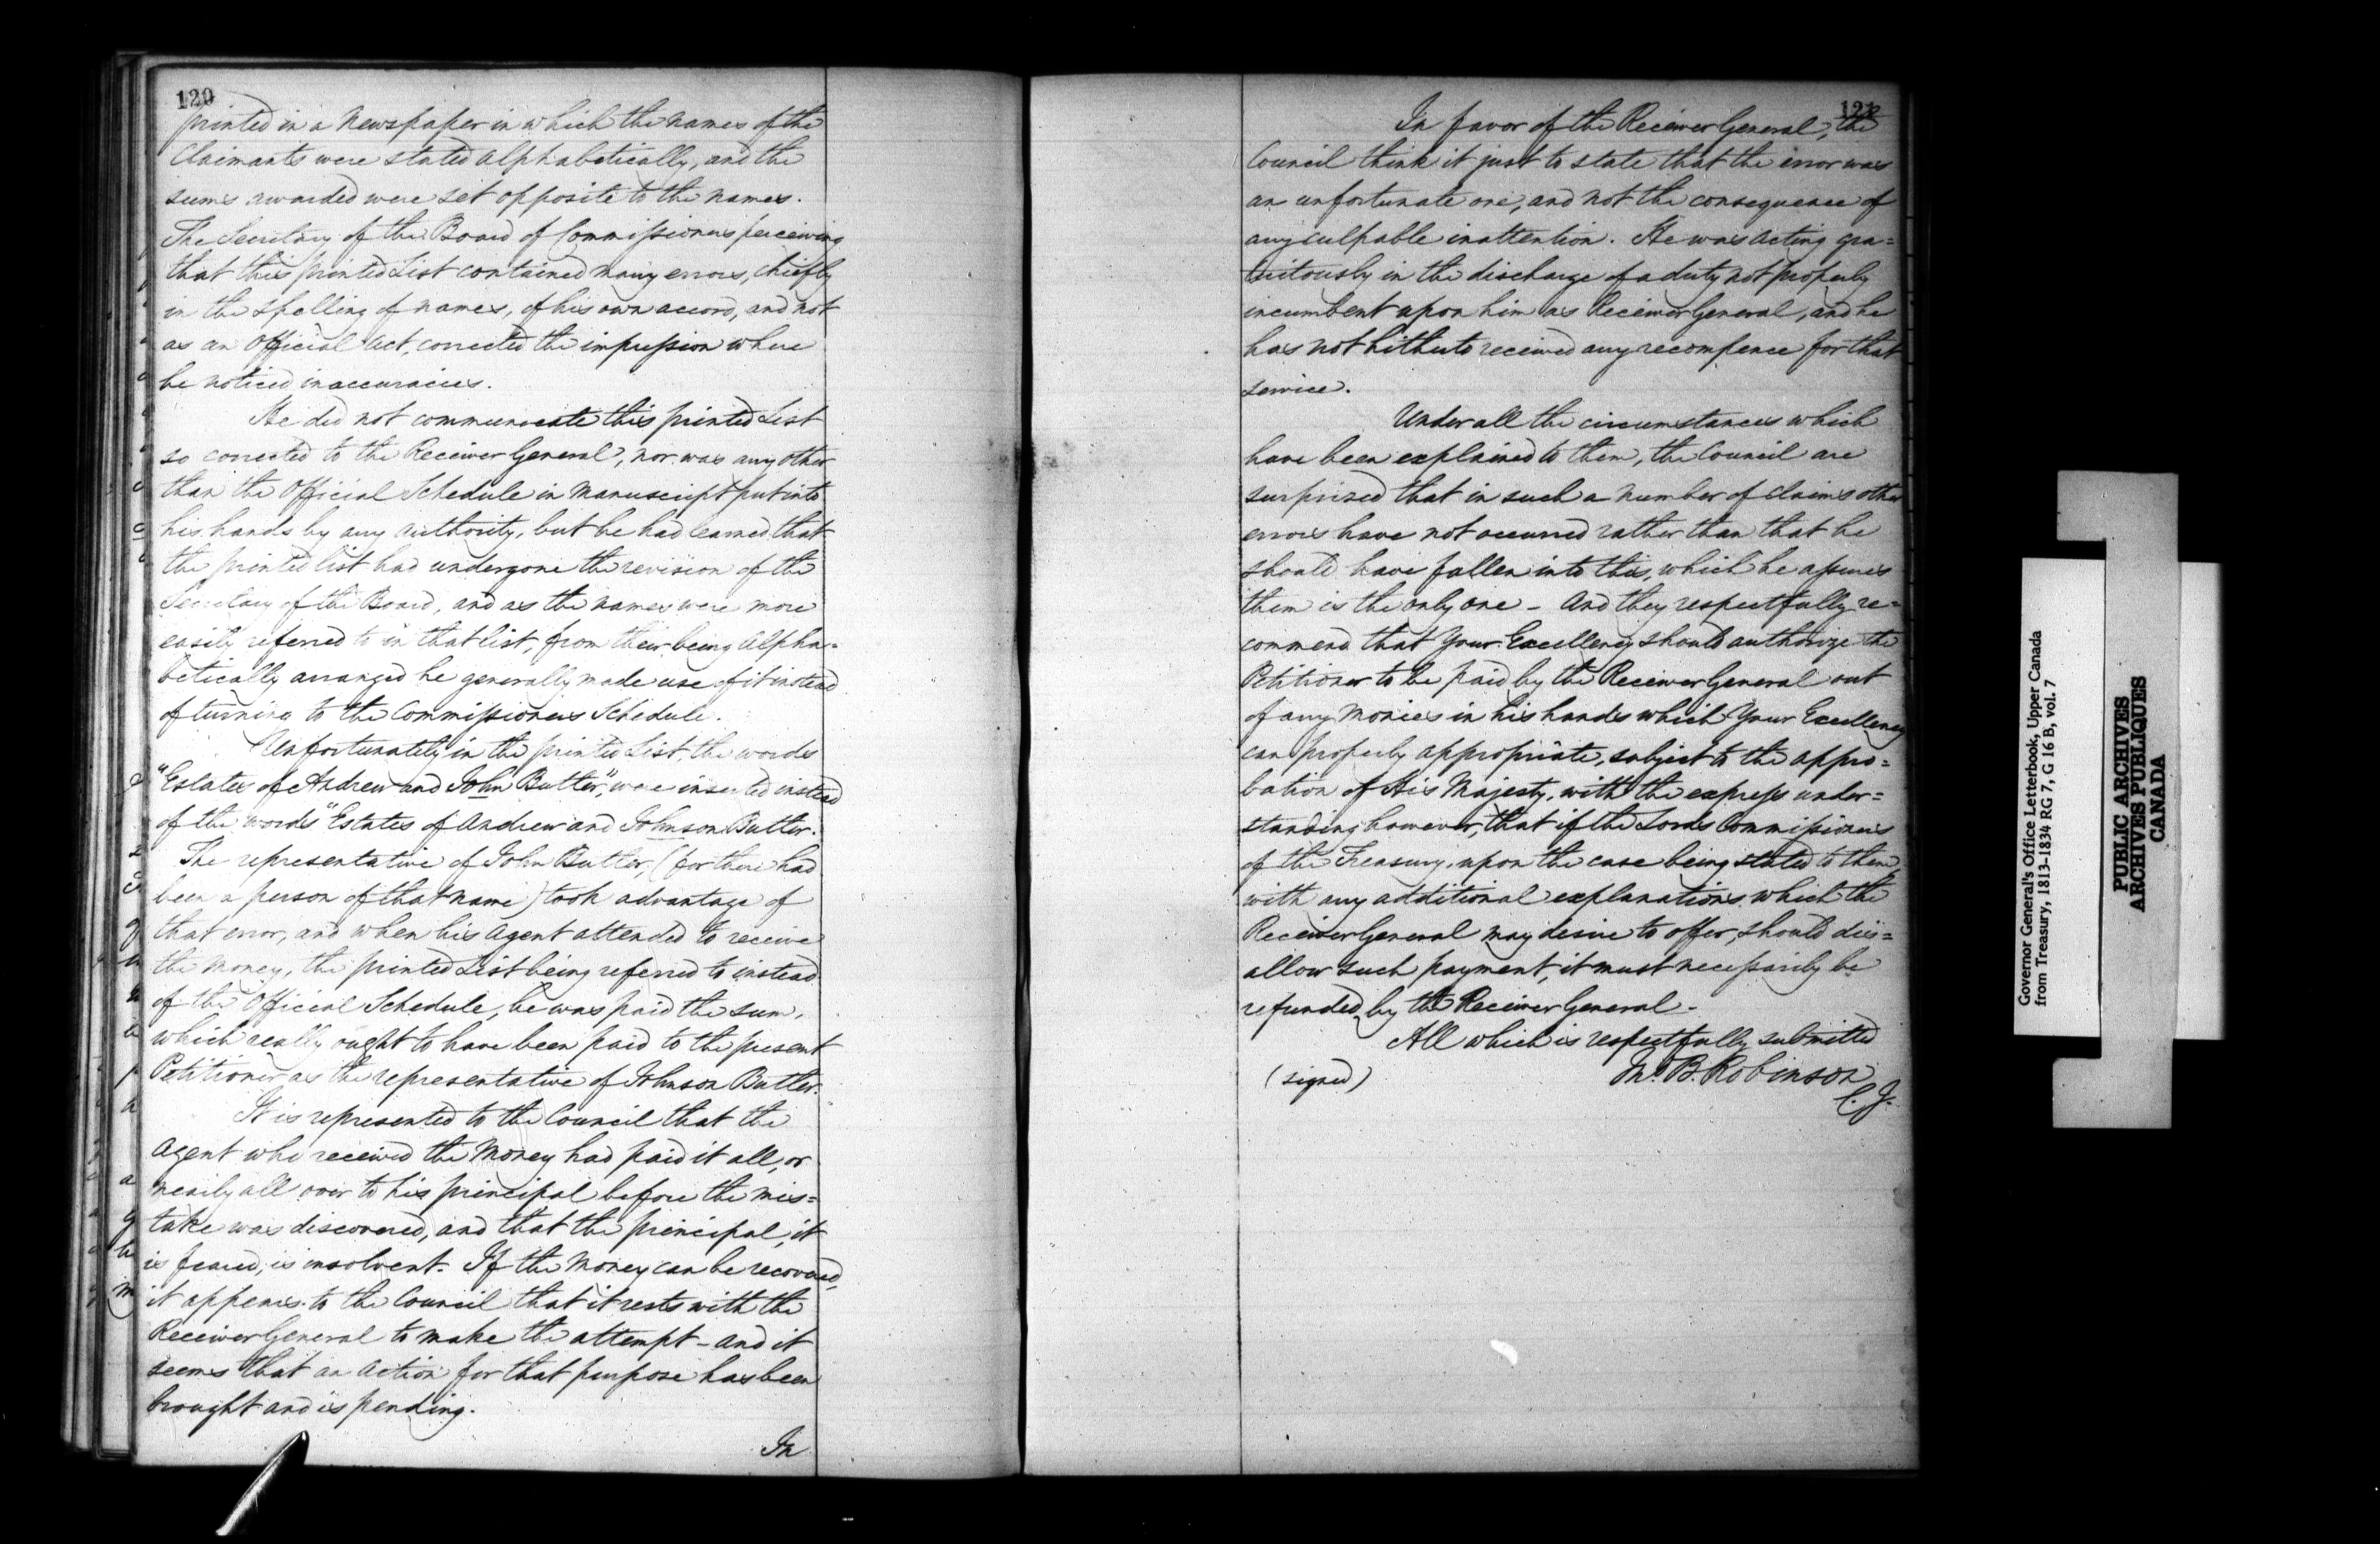 120
printed in a Newspaper in which the names of the
Claimants were stated Alphabetically, and the
sums awarded were set opposite to the names.
The Secretary of the Board of Commissioners perceiving
that this printed List contained many errors, chiefly
in the spelling of names, of his own accord, and not
as an Official Act, corrected the impression where
he noticed inaccuracies.
He did not communicate this printed List
so corrected to the Receiver General, nor was any other
than the Official Schedule in Manuscript put into
his hands by any authority, but he had learned that
the printed list had undergone the revision of the
Secretary of the Board, and as the names were more
easily referred to in that list, from their being Alpha=
betically arranged he generally made use of it instead
of turning to the Commissioners Schedule.
Unfortunately in the printed List, the words
"Estates of Andrew and John Butler," were inserted instead
of the words "Estates of Andrew and Johnson Butler.
The representative of John Butler, (for there had
been a person of that name) took advantage of
that error, and when his Agent attended to receive
the Money, the printed List being referred to instead
of the Official Schedule, he was paid the sum,
which really ought to have been paid to the present
Petitioner as the representative of Johnson Butler.
It is represented to the Council that the
Agent who received the Money had paid it all, or
nearily all over to his principal before the mis=
take was discovered, and that the principal, it
is feared, is insolvent. If the Money can be recovered,
it appears to the Council that it rests with the
Receiver General to make the attempt - and it
seems that an Action for that purpose has been
brought and is pending.
In
121
In favor of the Receiver General, the
Council think it just to state that the error was
an unfortunate one, and not the consequence of
any culpable inattention. He was acting gra=
tuitously in the discharge of a duty not properly
incumbent upon him as Receiver General, and he
has not hitherto received any recompence for that
service.
Under all the circumstances which
have been explained to them, the Council are
surprized that in such a number of Claims other
errors have not occurred rather than that he
should have fallen into this, which he assures
them is the only one - And they respectfully re=
commend that Your Excellency should authorize the
Petitioner to be paid by the Receiver General out
of any Monies in his hands which Your Excellency
can properly appropriate, subject to the appro=
bation of His Majesty, with the express under=
standing however, that if the Lords Commissioners
of the Treasury, upon the case being stated to them
with any additional explanations which the
Receiver General may desire to offer, should dis=
allow such payment, it must necessarily be
refunded by the Receiver General -
All which is respectfully submitted
(signed) Jno. B. Robinson
C. J.
Governor General's Office Letterbook, Upper Canada
from Treasury, 1813-1834 RG 7, G 16 B, vol. 7
PUBLIC ARCHIVES
ARCHIVES PUBLIQUES
CANADA